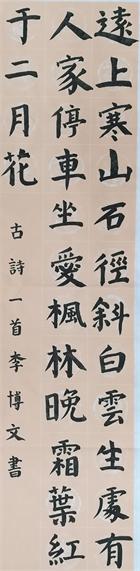 遠上寒山石徑斜白雲生處有
人家停車坐愛楓林晚霜葉紅
于二月花
古詩一首李博文書